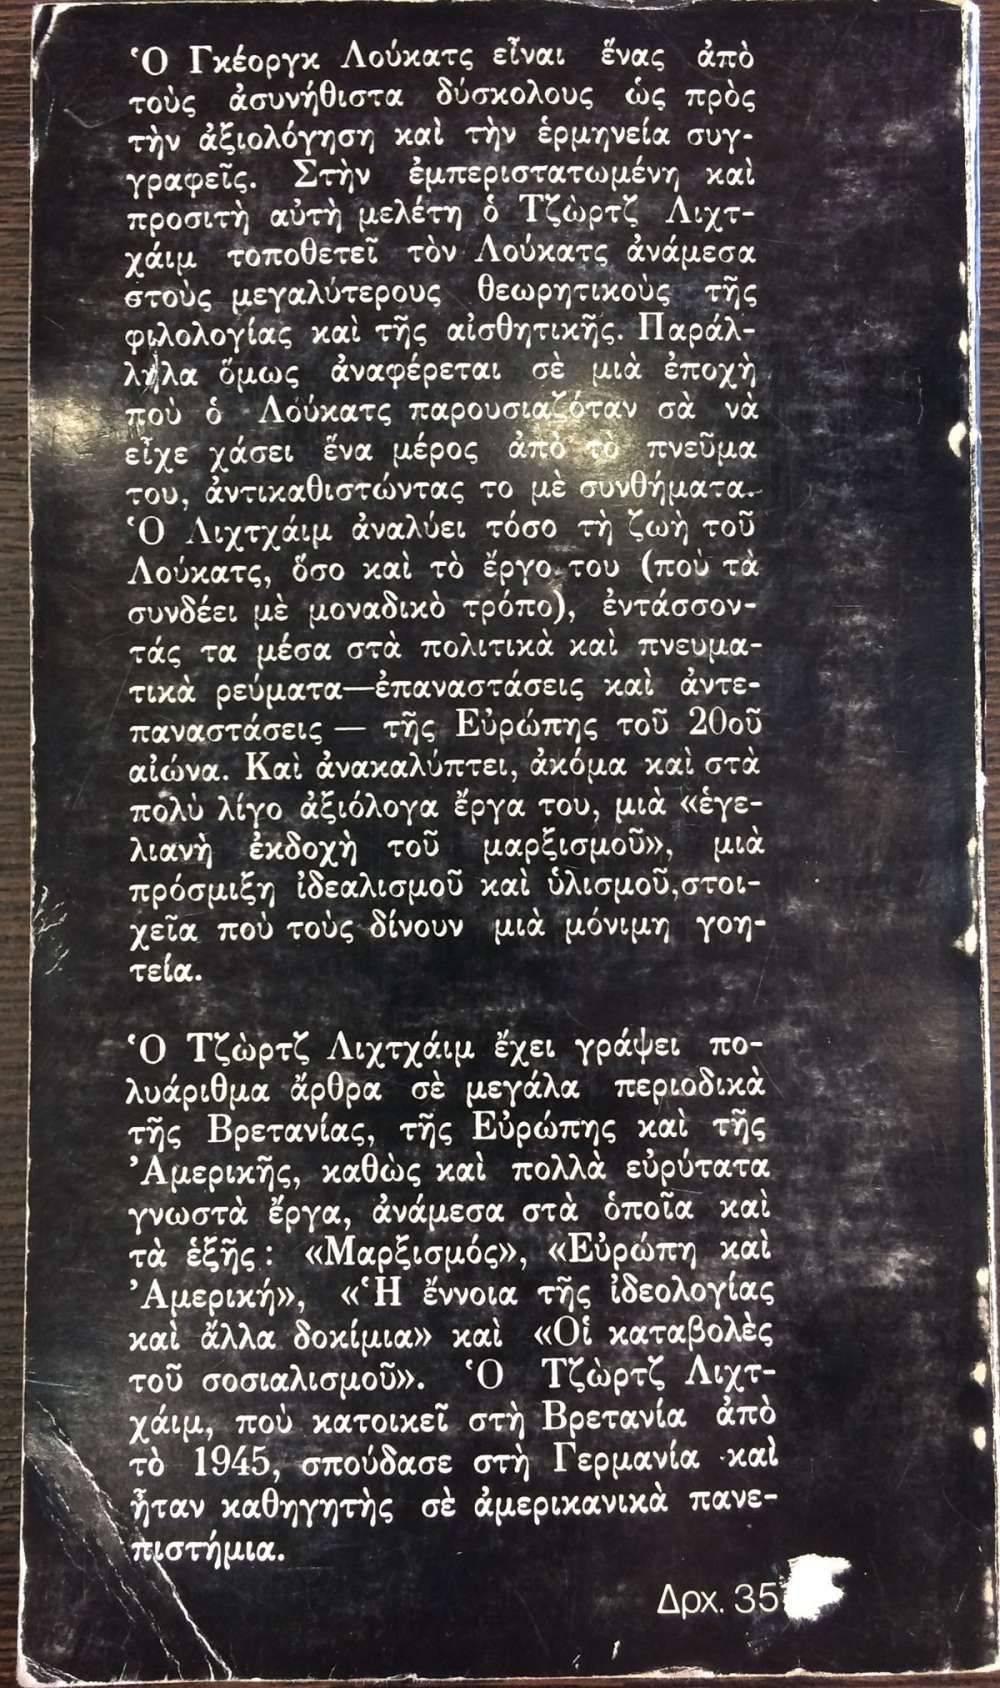 Ὁ Γκέοργκ Λούκατς εἶναι ἕνας ἀπὸ
τοὺς ἀσυνήθιστα δύσκολους ὡς πρὸς
τὴν ἀξιολόγηση καὶ τὴν ἑρμηνεία συγ-
γραφεῖς. Στὴν ἐμπεριστατωμένη καὶ
προσιτὴ αὐτὴ μελέτη ὁ Τζὼρτζ Λιχτ-
χάιμ τοποθετεῖ τὸν Λούκατς ἀνάμεσα
στοὺς μεγαλύτερους θεωρητικοὺς τῆς
φιλολογίας καὶ τῆς αἰσθητικῆς. Παράλ-
ληλα ὅμως ἀναφέρεται σὲ μιὰ ἐποχὴ
ποὺ ὁ Λούκατς παρουσιαζόταν σὰ νὰ
εἶχε χάσει ἕνα μέρος ἀπὸ τὸ πνεῦμα
του, ἀντικαθιστώντας το μὲ συνθήματα.
Ὁ Λιχτχάιμ ἀναλύει τόσο τὴ ζωὴ τοῦ
Λούκατς, ὅσο καὶ τὸ ἔργο του (ποὺ τὰ
συνδέει μὲ μοναδικὸ τρόπο), ἐντάσσον-
τάς τα μέσα στὰ πολιτικὰ καὶ πνευμα-
τικὰ ρεύματα—ἐπαναστάσεις καὶ ἀντε-
παναστάσεις — τῆς Εὐρώπης τοῦ 20οῦ
αἰώνα. Καὶ ἀνακαλύπτει, ἀκόμα καὶ στὰ
πολὺ λίγο ἀξιόλογα ἔργα του, μιὰ «ἑγε-
λιανὴ ἐκδοχὴ τοῦ μαρξισμοῦ», μιὰ
πρόσμιξη ἰδεαλισμοῦ καὶ ὑλισμοῦ,στοι-
χεῖα ποὺ τοὺς δίνουν μιὰ μόνιμη γοη-
τεία.
Ὁ Τζὼρτζ Λιχτχάιμ ἔχει γράψει πο-
λυάριθμα ἄρθρα σὲ μεγάλα περιοδικὰ
τῆς Βρετανίας, τῆς Εὐρώπης καὶ τῆς
Ἀμερικῆς, καθὼς καὶ πολλὰ εὐρύτατα
γνωστὰ ἔργα, ἀνάμεσα στὰ ὁποῖα καὶ
τὰ ἑξῆς: «Μαρξισμός», «Εὐρώπη καὶ
Ἀμερική», «Ἡ ἔννοια τῆς ἰδεολογίας
καὶ ἄλλα δοκίμια» καὶ «Οἱ καταβολὲς
τοῦ σοσιαλισμοῦ». Ὁ Τζὼρτζ Λιχτ-
χάιμ, ποὺ κατοικεῖ στὴ Βρετανία ἀπὸ
τὸ 1945, σπούδασε στὴ Γερμανία καὶ
ἦταν καθηγητὴς σὲ ἀμερικανικὰ πανε-
πιστήμια.
Δρχ. 35